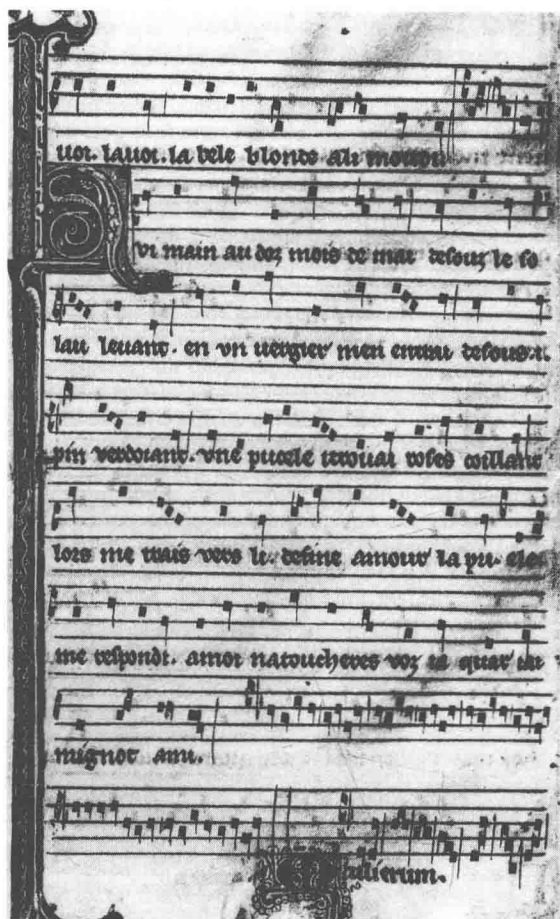 uoi. lauoi. la bele blonde a li motroi
vi main au doz mois de mai desouz le so
lau leuant. en vn uergier men entrai desous .i.
pin verdoiant. vne pucele i trouai roses coillant
lors me trais vers li. de fine amour la pri. ele
me respondi. a moi natoucheres voz ia quar iai
mignot ami.
ulierum.